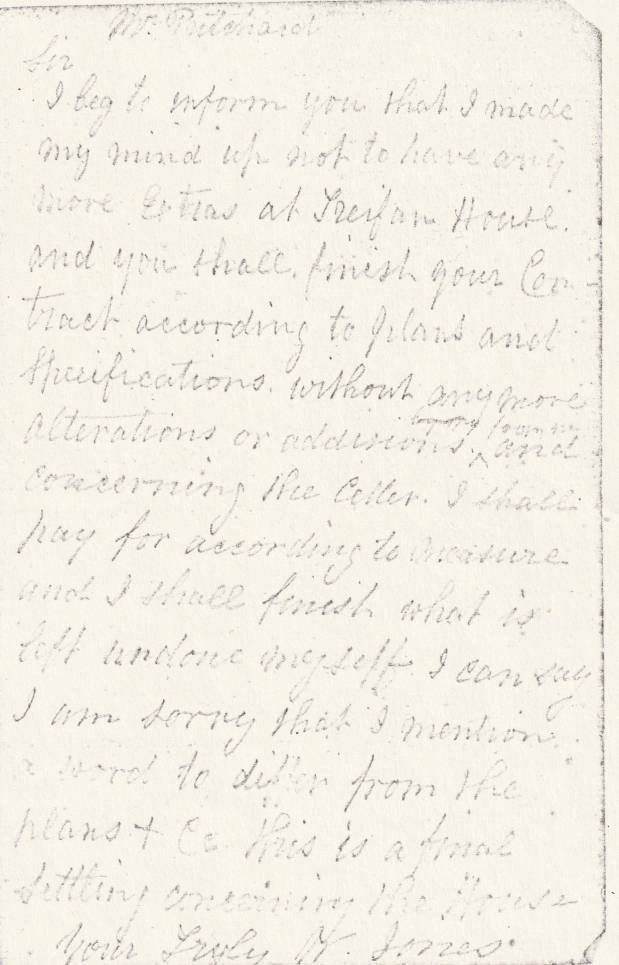 Mr Pritchard
Sir
I beg to inform you that I made
my mind up not to have any
more Extras at Treifan House.
and you shall. finish your Con-
tract according to plans and
Specifications. without any more
alterations or additions. and
concerning the Celler. I shall
pay for according to measure
and I shall finish what is
left undone myself I can say
I am sorry that I mention
a word to differ from the
plans + Cc this is a final
Settling concerning the House
Your Truly W. Jones